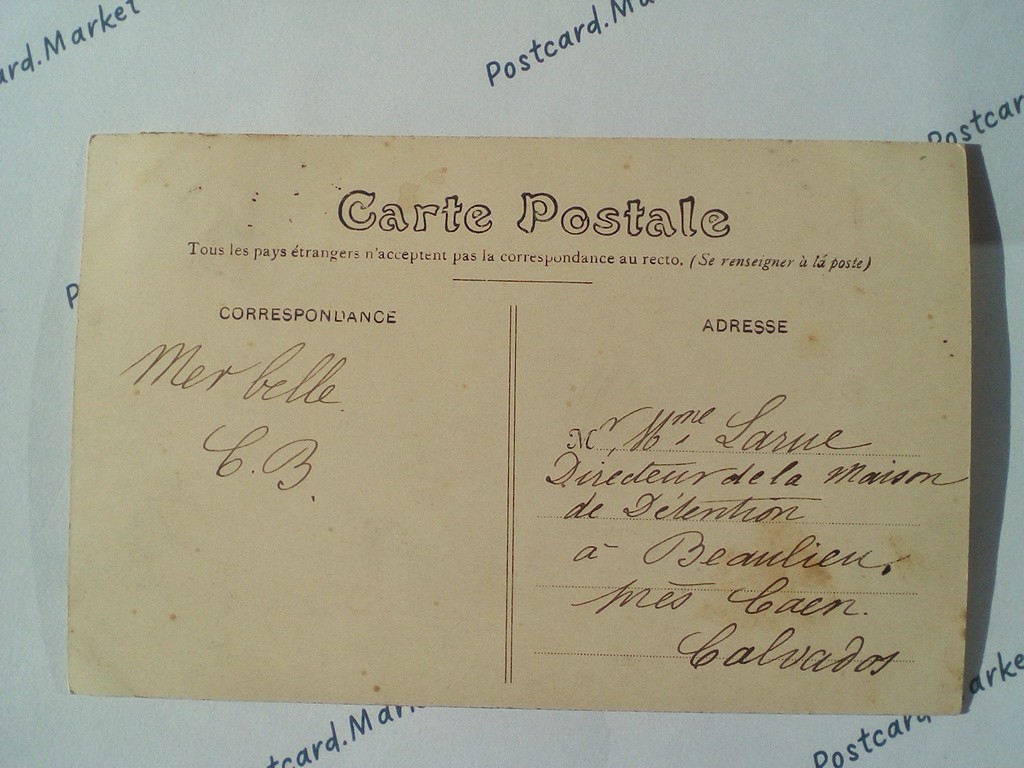 Postcard.Market
Postcard.Ma
Postcar
Carte Postale
Tous les pays étrangers n'acceptent pas la correspondance au recto. (Se renseigner à lá poste)
CORRESPONDANCE
ADRESSE
Mer belle
C.B.
Mr, Mme Larue
Directeur de la Maison
de Détention
à Beaulieu,
près Caen.
Calvados
tcard.Mar
Postcard.Marke